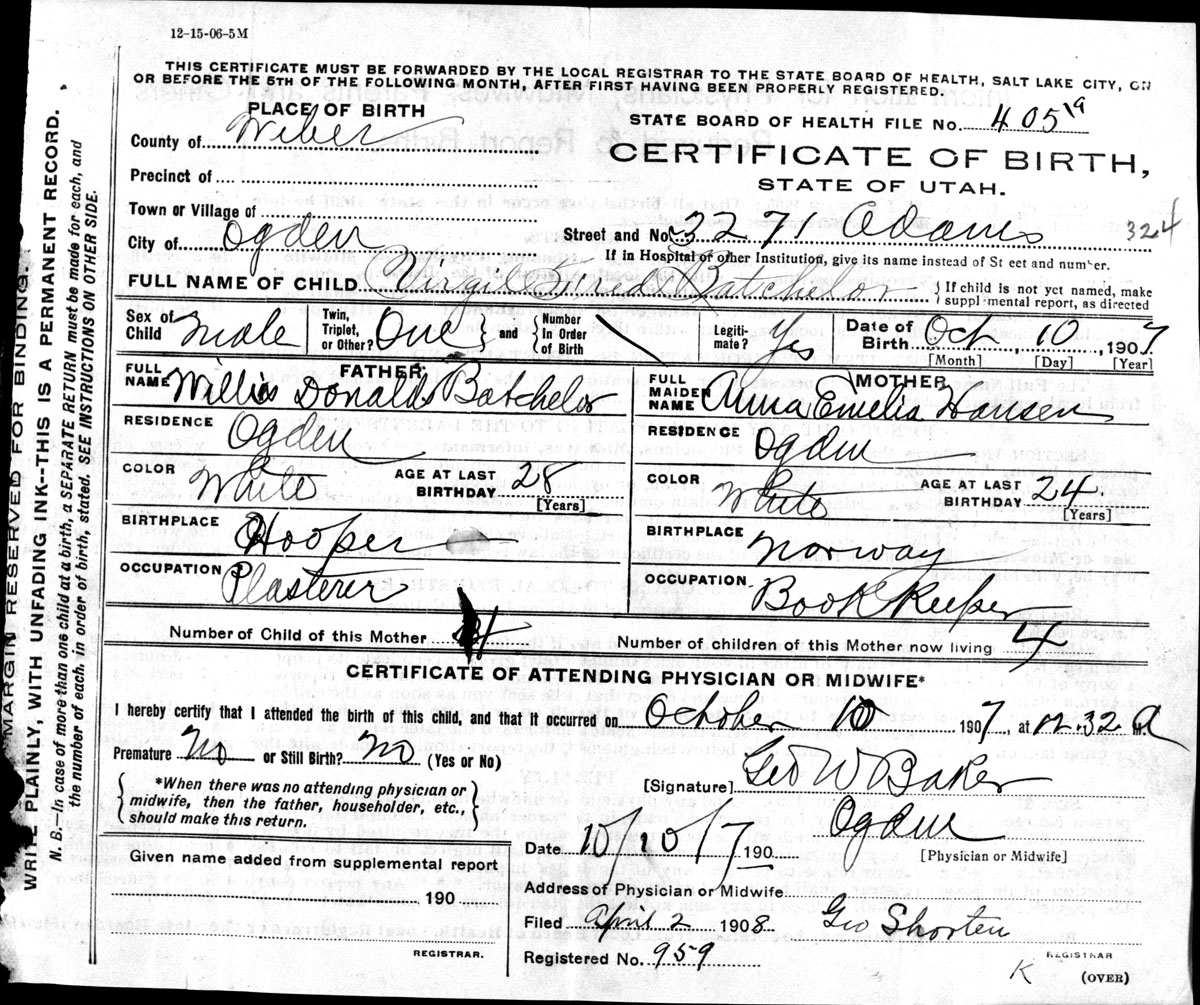 12-15-06-5M
THIS CERTIFICATE MUST BE FORWARDED BY THE LOCAL REGISTRAR TO THE STATE BOARD OF HEALTH, SALT LAKE CITY, ON
OR BEFORE THE 5TH OF THE FOLLOWING MONTH, AFTER FIRST HAVING BEEN PROPERLY REGISTERED.
PLACE OF BIRTH
STATE BOARD OF HEALTH FILE No. 405 19
County of Weber
CERTIFICATE OF BIRTH,
Precinct of
STATE OF UTAH.
Town or Village of
City of Ogden
Street and No. 3271 Adams 324
If in Hospital or other Institution, give its name instead of St eet and number.
FULL NAME OF CHILD Virgil Batchelor { If child is not yet named, make suppl mental report, as directed
Sex of Child Male Twin, Triplet, or Other? One } and { Number In Order of Birth Legiti- mate? Yes Date of Birth Oct 10 1907
[Month] [Day] [Year]
FATHER
FULL NAME Willis Donald Batchelor
MOTHER
FULL MAIDEN NAME Anna Emelia Hansen
RESIDENCE Ogden
RESIDENCE Ogden
COLOR White AGE AT LAST BIRTHDAY 28 [Years]
COLOR White AGE AT LAST BIRTHDAY 24 [Years]
BIRTHPLACE Hooper
BIRTHPLACE Norway
OCCUPATION Plasterer
OCCUPATION Book Keeper
Number of Child of this Mother 4
Number of children of this Mother now living 4
CERTIFICATE OF ATTENDING PHYSICIAN OR MIDWIFE*
I hereby certify that I attended the birth of this child, and that it occurred on October 10 1907, at 12.32 a M.
Premature No or Still Birth? No (Yes or No)
*When there was no attending physician or midwife, then the father, householder, etc., should make this return.
[Signature] Geo W Baker
Ogden
Date 10/10/7 190
[Physician or Midwife]
Given name added from supplemental report
190
Address of Physician or Midwife
Filed April 2 1908 Geo Shorten
REGISTRAR.
Registered No. 959
REGISTRAR
K
(OVER)
MARGIN RESERVED FOR BINDING.
WRITE PLAINLY, WITH UNFADING INK--THIS IS A PERMANENT RECORD.
N. B. In case of more than one child at a birth, a SEPARATE RETURN must be made for each, and
the number of each, in order of birth, stated. SEE INSTRUCTIONS ON OTHER SIDE.